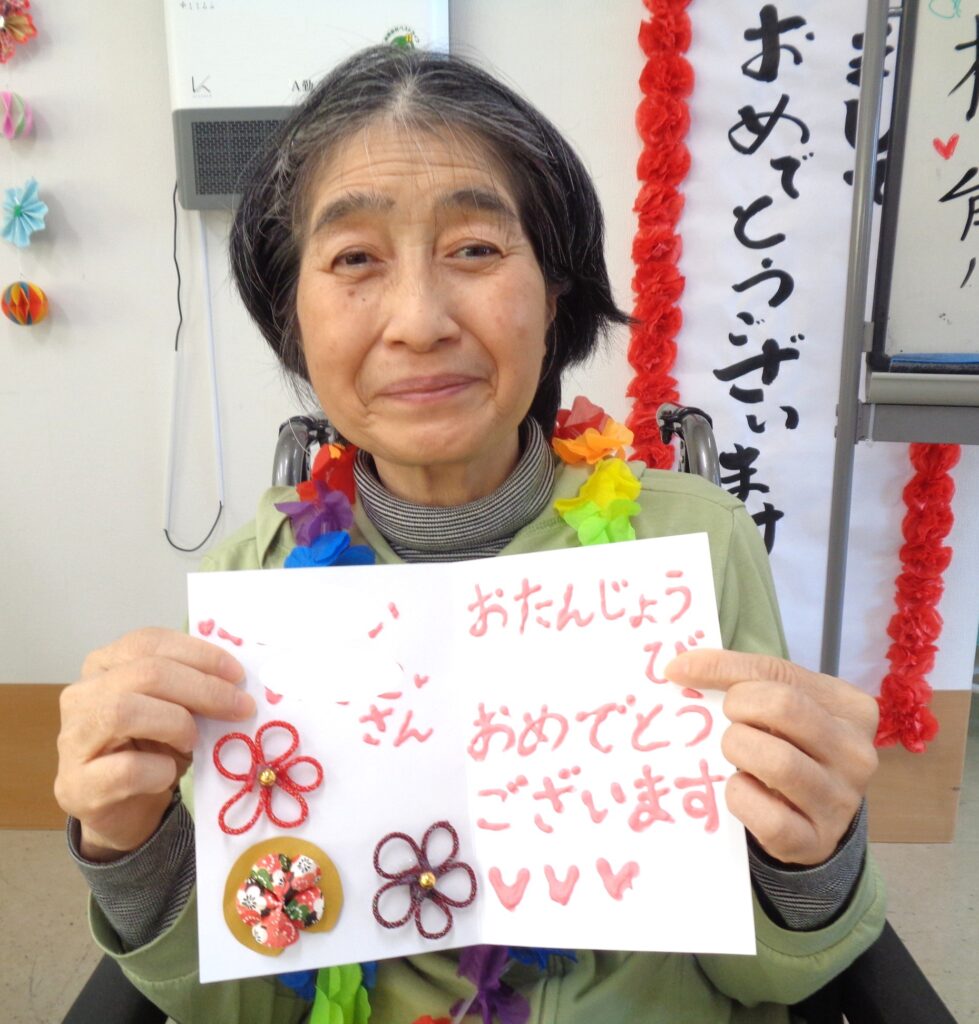 さん
おたんじょう
び
おめでとう
ございます
おめでとうございます